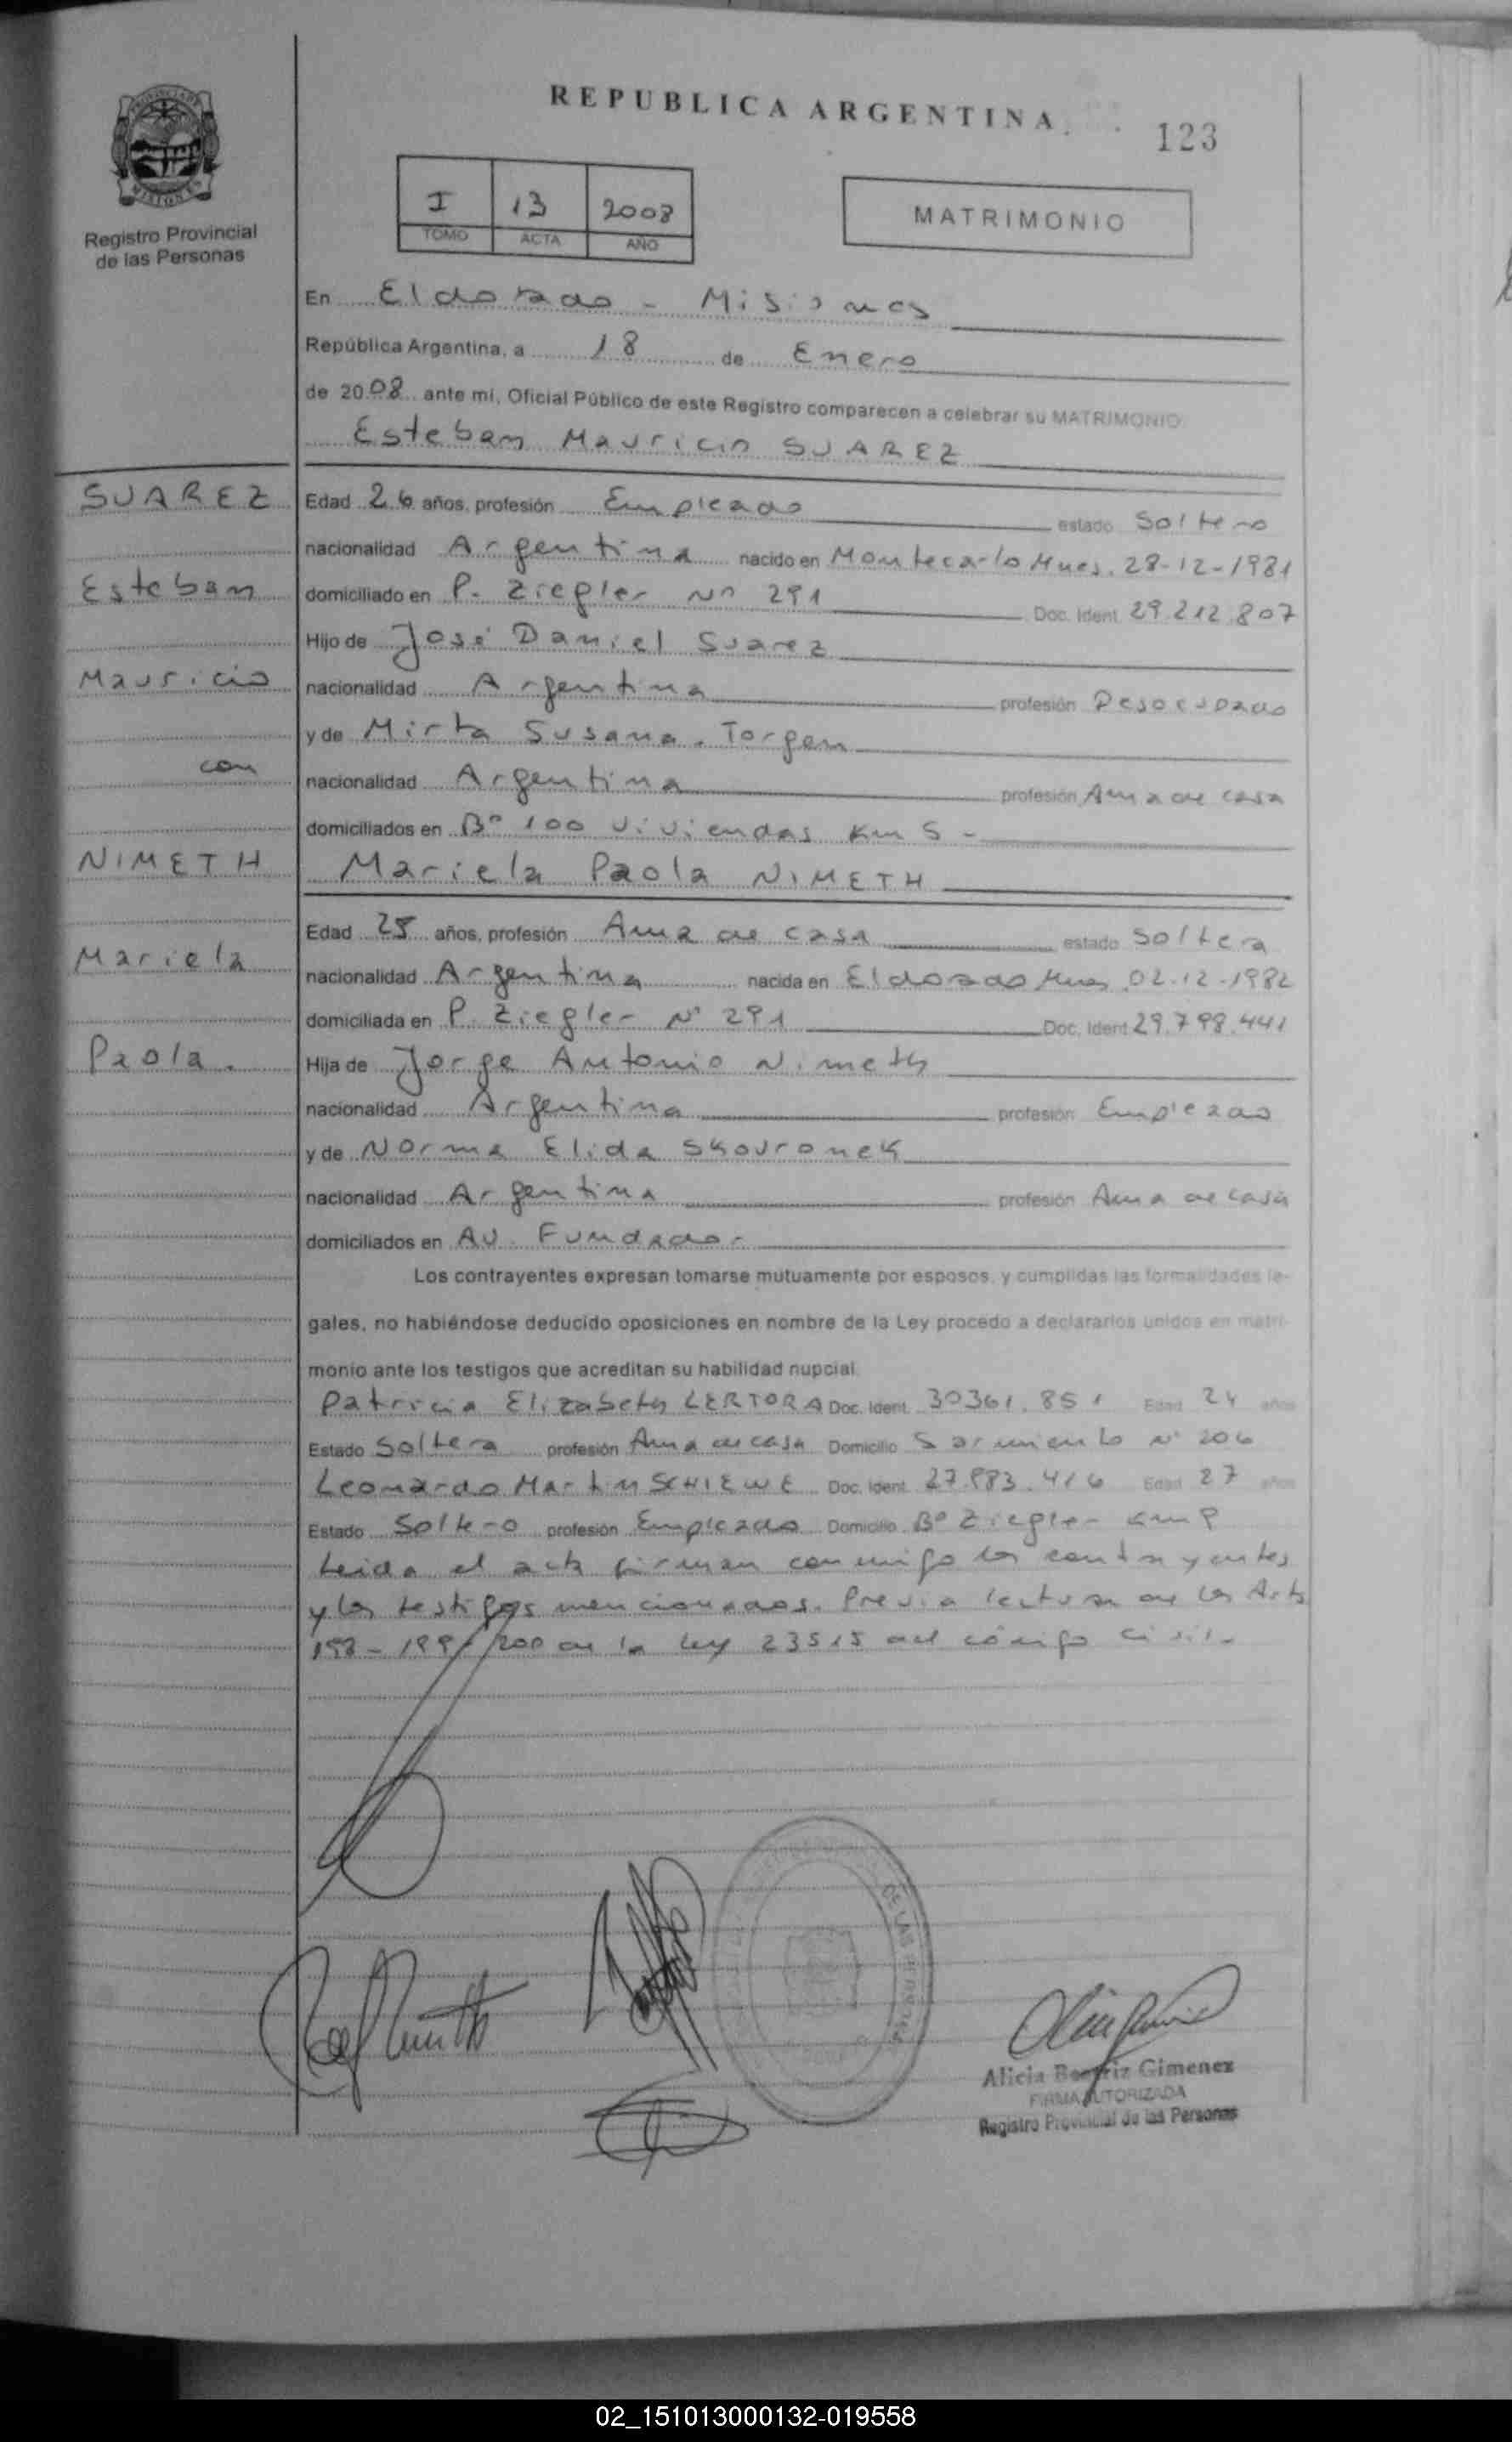 REPUBLICA ARGENTINA
123
PROVINCIA DE MISIONES
Registro Provincial
de las Personas
I 13 2008
TOMO ACTA AÑO
MATRIMONIO
En Eldorado - Misiones
República Argentina, a 18 de Enero
de 2008 ante mi, Oficial Público de este Registro comparecen a celebrar su MATRIMONIO
Esteban Mauricio SUAREZ
SUAREZ
Esteban
Mauricio
con
NIMETH
Mariela
Paola.
Edad 26 años, profesión Empleado estado Soltero
nacionalidad Argentina nacido en Montecarlo Mnes. 28-12-1981
domiciliado en P. Ziegler Nº 291 Doc. Ident. 29.212.807
Hijo de José Daniel Suarez
nacionalidad Argentina profesión Desocupado
y de Mirta Susana Torgen
nacionalidad Argentina profesión Ama de casa
domiciliados en Bº 100 Viviendas Km 5 -
Mariela Paola NIMETH
Edad 25 años, profesión Ama de casa estado Soltera
nacionalidad Argentina nacida en Eldorado Mnes 02-12-1982
domiciliada en P. Ziegler Nº 291 Doc. Ident 29.798.441
Hija de Jorge Antonio Nimeth
nacionalidad Argentina profesión Empleado
y de Norma Elida Skouronek
nacionalidad Argentina profesión Ama de casa
domiciliados en Av. Fundador
Los contrayentes expresan tomarse mutuamente por esposos, y cumplidas las formalidades le-
gales, no habiéndose deducido oposiciones en nombre de la Ley procedo a declararlos unidos en matri-
monio ante los testigos que acreditan su habilidad nupcial.
Patricia Elizabeth LERTORA Doc. Ident. 30361.851 Edad 24 años
Estado Soltera profesión Ama de casa Domicilio Sarmiento Nº 206
Leonardo Martin SCHIEWE Doc. Ident. 27.883.416 Edad 27 años
Estado Soltero profesión Empleado Domicilio Bº Ziegler Km 9
Leida el acta firman conmigo los contrayentes
y los testigos mencionados. Previa lectura de los Arts
198 - 199 / 200 de la Ley 23515 del código civil.
DE LAS PERSONAS
Alicia Beatriz Gimenez
FIRMA AUTORIZADA
Registro Provincial de las Personas
02_151013000132-019558